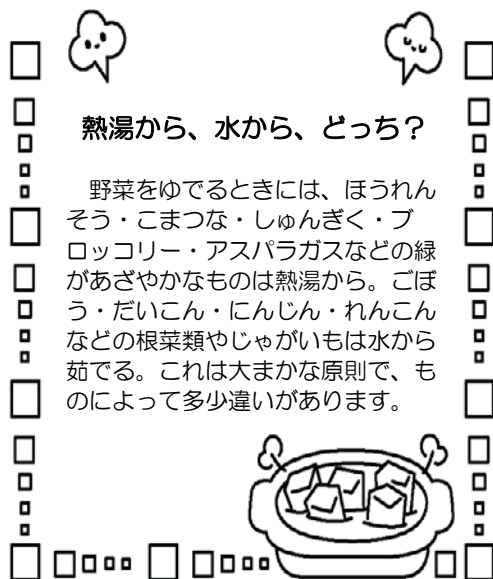 熱湯から、水から、どっち？
　野菜をゆでるときには、ほうれん
そう・こまつな・しゅんぎく・ブ
ロッコリー・アスパラガスなどの緑
があざやかなものは熱湯から。ごぼ
う・だいこん・にんじん・れんこん
などの根菜類やじゃがいもは水から
茹でる。これは大まかな原則で、も
のによって多少違いがあります。